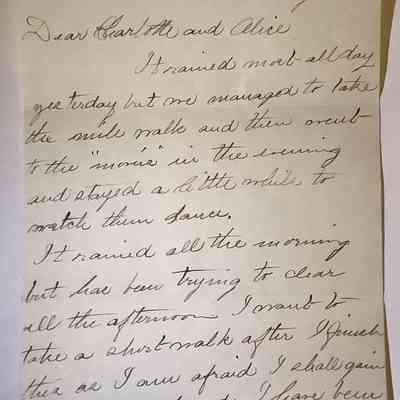 Dear Charlotte and Alice
It rained most all day
yesterday but we managed to take
the mile walk and then went
to the "movie" in the evening
and stayed a little while to
watch them dance.
It rained all the morning
but has been trying to clear
all the afternoon I want to
take a short walk after I finish
this as I am afraid I shall gain
I have been